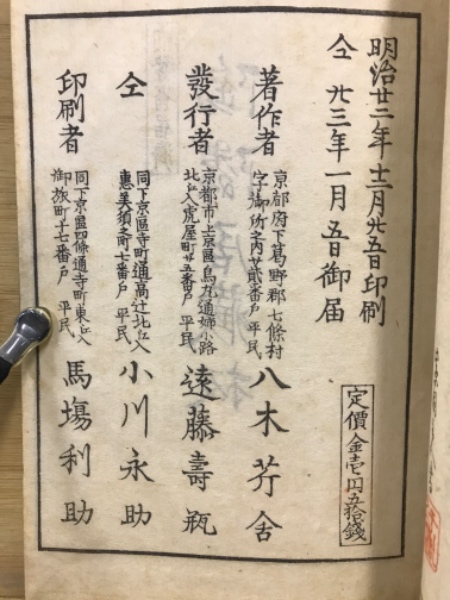 明治廿二年十二月廿五日印刷
仝 廿三年一月五日御届
定價金壱円五拾錢
著作者
京都府下葛野郡七條村
字御所之内廿貳番戸 平民
八木芹舎
發行者
京都市上京區烏丸通姉小路
北江入虎屋町廿五番戸 平民
遠藤壽瓶
仝
同下京區寺町通高辻北江入
惠美須之町七番戸 平民
小川永助
印刷者
同下京區四條通寺町東江入
御旅町十七番戸 平民
馬塲利助